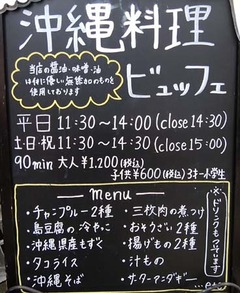 沖縄料理
ビュッフェ
当店の醤油・味噌・油
は体に優しい無添加のものを
使用しております
平日 11:30〜14:00 (close 14:30)
土日・祝 11:30〜14:30 (close 15:00)
90min 大人 ¥1.200(税込)
子供 ¥600(税込) 3才〜小学生
menu
・チャンプルー2種
・島豆腐の冷やっこ
・沖縄県産もずく
・タコライス
・沖縄そば
・三枚肉の煮つけ
・おそうざい2種
・揚げもの2種
・汁もの
・サーターアンダギー
…etc
※ドリンクもついています